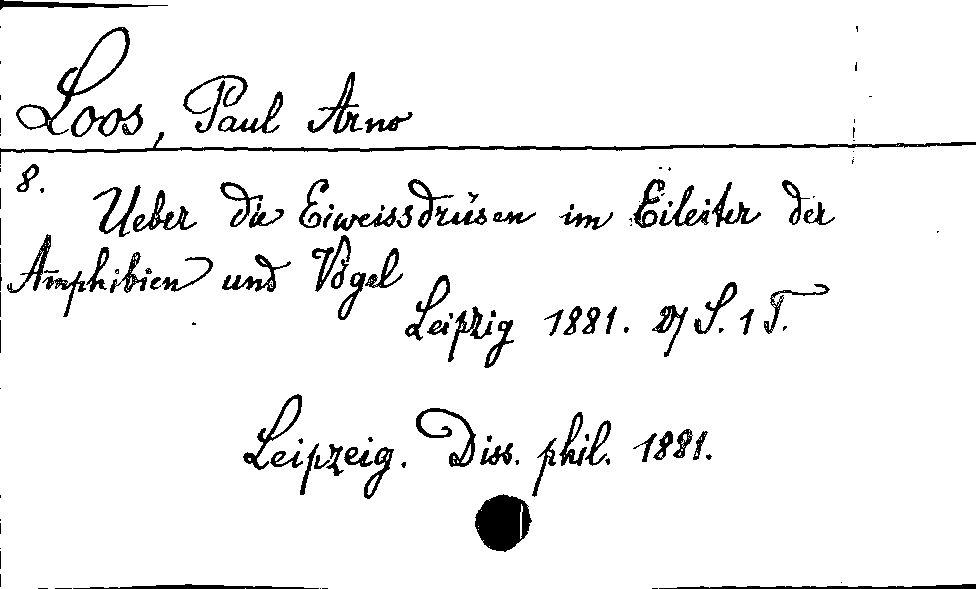 Loos, Paul Arno
8.
Ueber die Eiweissdrüsen im Eileiter der
Amphibien und Vögel
Leipzig 1881. 27 S. 1 T.
Leipzeig. Diss. phil. 1881.